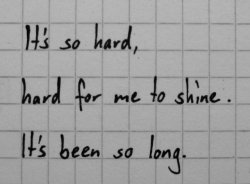 It's so hard,
hard for me to shine.
It's been so long.